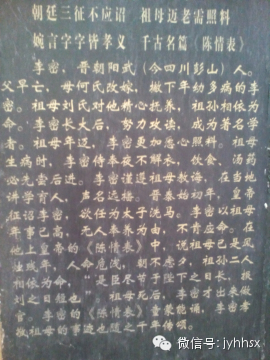 朝廷三征不应诏 祖母迈老需照料
婉言字字皆孝义 千古名篇《陈情表》
李密，晋朝阳武（今四川彭山）人。
父早亡，母何氏改嫁，撇下幼多病的李
密。祖母刘氏对他精心抚养，祖孙相依为
命。李密长大后，努力攻读，成为著名学
者。祖母年迈，李密更加悉心照料。祖母
生病时，李密侍奉夜不解衣，饮食、汤药
必先尝后进。李密谨遵祖母教诲，在当地
讲学育人，声名远播。晋泰始初年，皇帝
征诏李密，欲任为太子洗马，李密以祖母
年事已高，无人奉养为由，不肯应命。在
他上皇帝的《陈情表》中，说祖母已是风
烛残年，人命危浅，朝不虑夕，祖孙二人
相依为命，“是臣尽节于陛下之日长，报
刘之日短也” 祖母死后，李密才出来做
官。李密的《陈情表》童叟能诵，李密孝
敬祖母的事迹也随之千年传颂。
微信号：jyhhsx